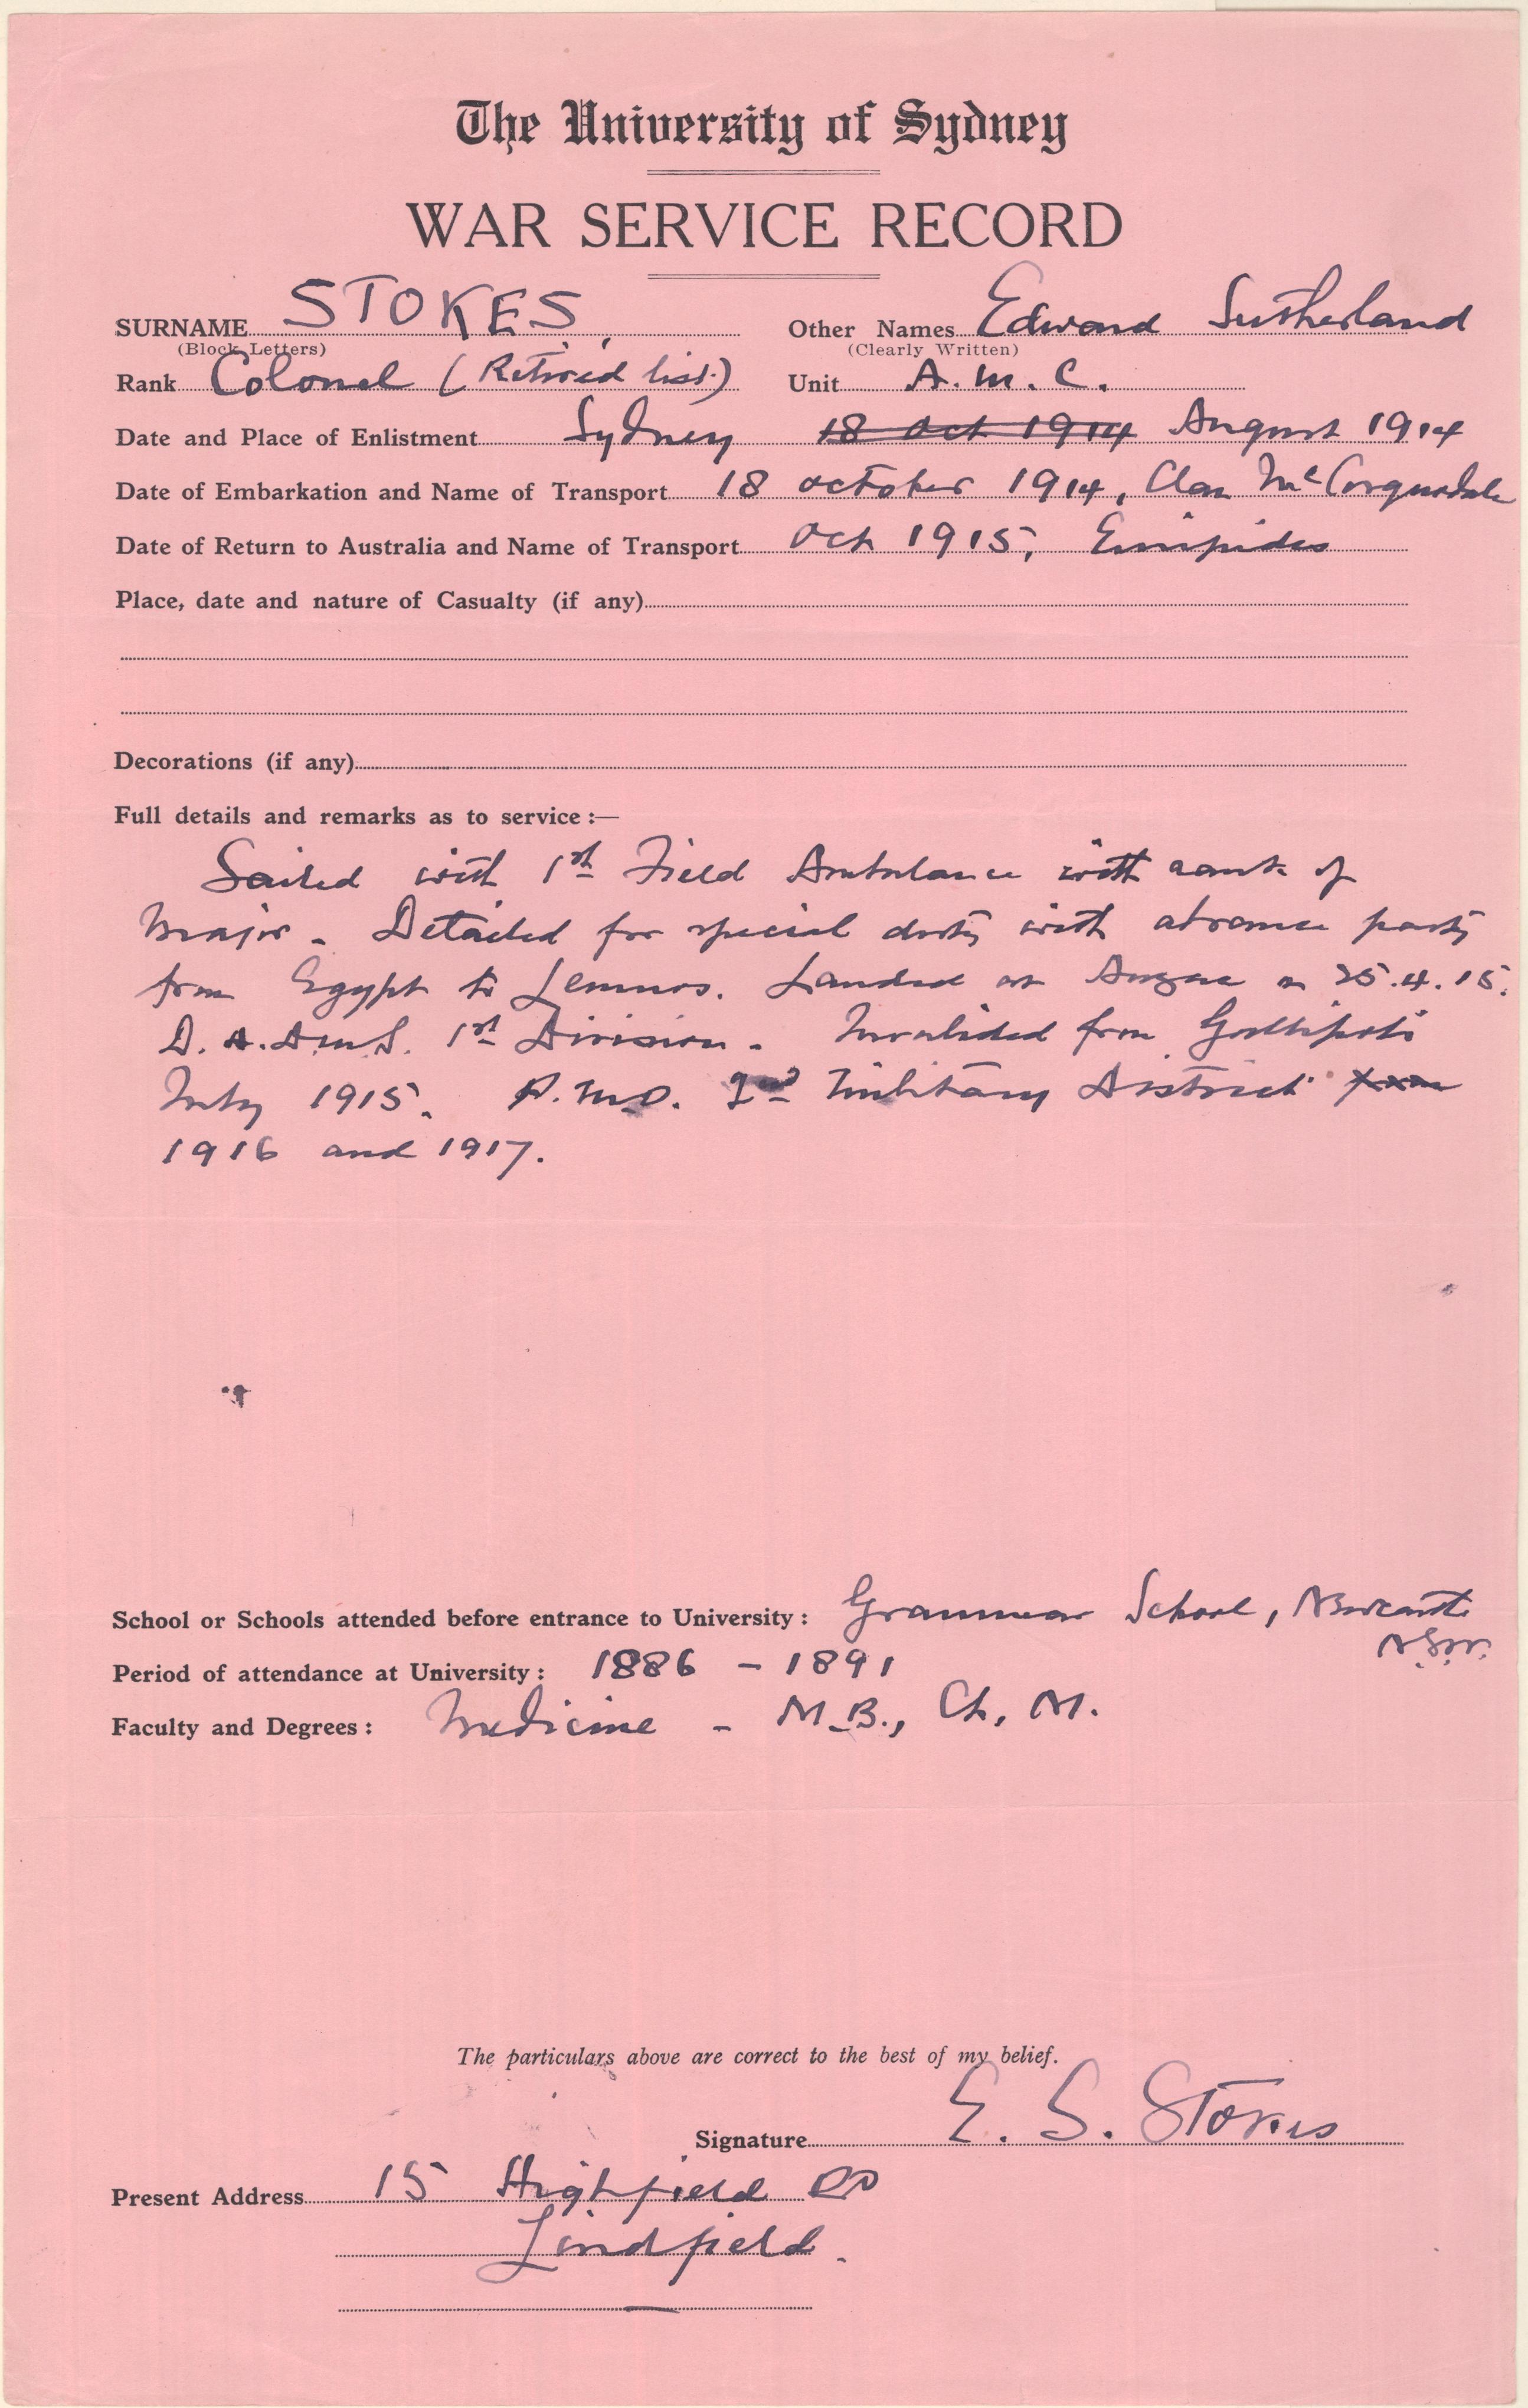 The University of Sydney
WAR SERVICE RECORD
SURNAME STOKES, Other Names Edward Sutherland
(Block Letters) (Clearly Written)
Rank Colonel (Retired list.) Unit A.M.C.
Date and Place of Enlistment Sydney 18 Oct 1914 August 1914
Date of Embarkation and Name of Transport 18 October 1914, Clan McCorquodale
Date of Return to Australia and Name of Transport Oct 1915, Euripides
Place, date and nature of Casualty (if any)
Decorations (if any)
Full details and remarks as to service :—
Sailed with 1st Field Ambulance with rank of
Major - Detailed for special duty with advance party
from Egypt to Lemnos. Landed at Anzac on 25.4.15.
D.A.D.M.S. 1st Division - Invalided from Gallipoli
July 1915. P.M.O. 2nd Military District
1916 and 1917.
School or Schools attended before entrance to University : Grammar School, Newcastle
N.S.W.
Period of attendance at University : 1886 - 1891
Faculty and Degrees : Medicine - M.B., Ch. M.
The particulars above are correct to the best of my belief.
Signature E. S. Stokes
Present Address 15 Highfield Rd
Lindfield.